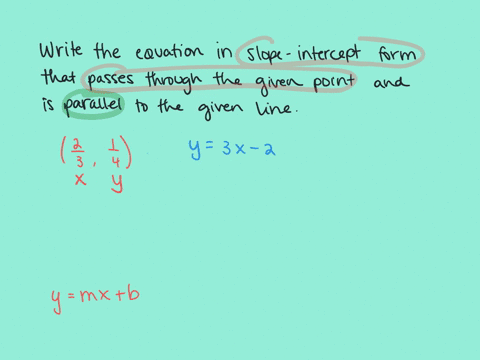 Write the equation in slope-intercept form
that passes through the given point and
is parallel to the given line.
(2/3, 1/4) y = 3x - 2
x y
y = mx + b